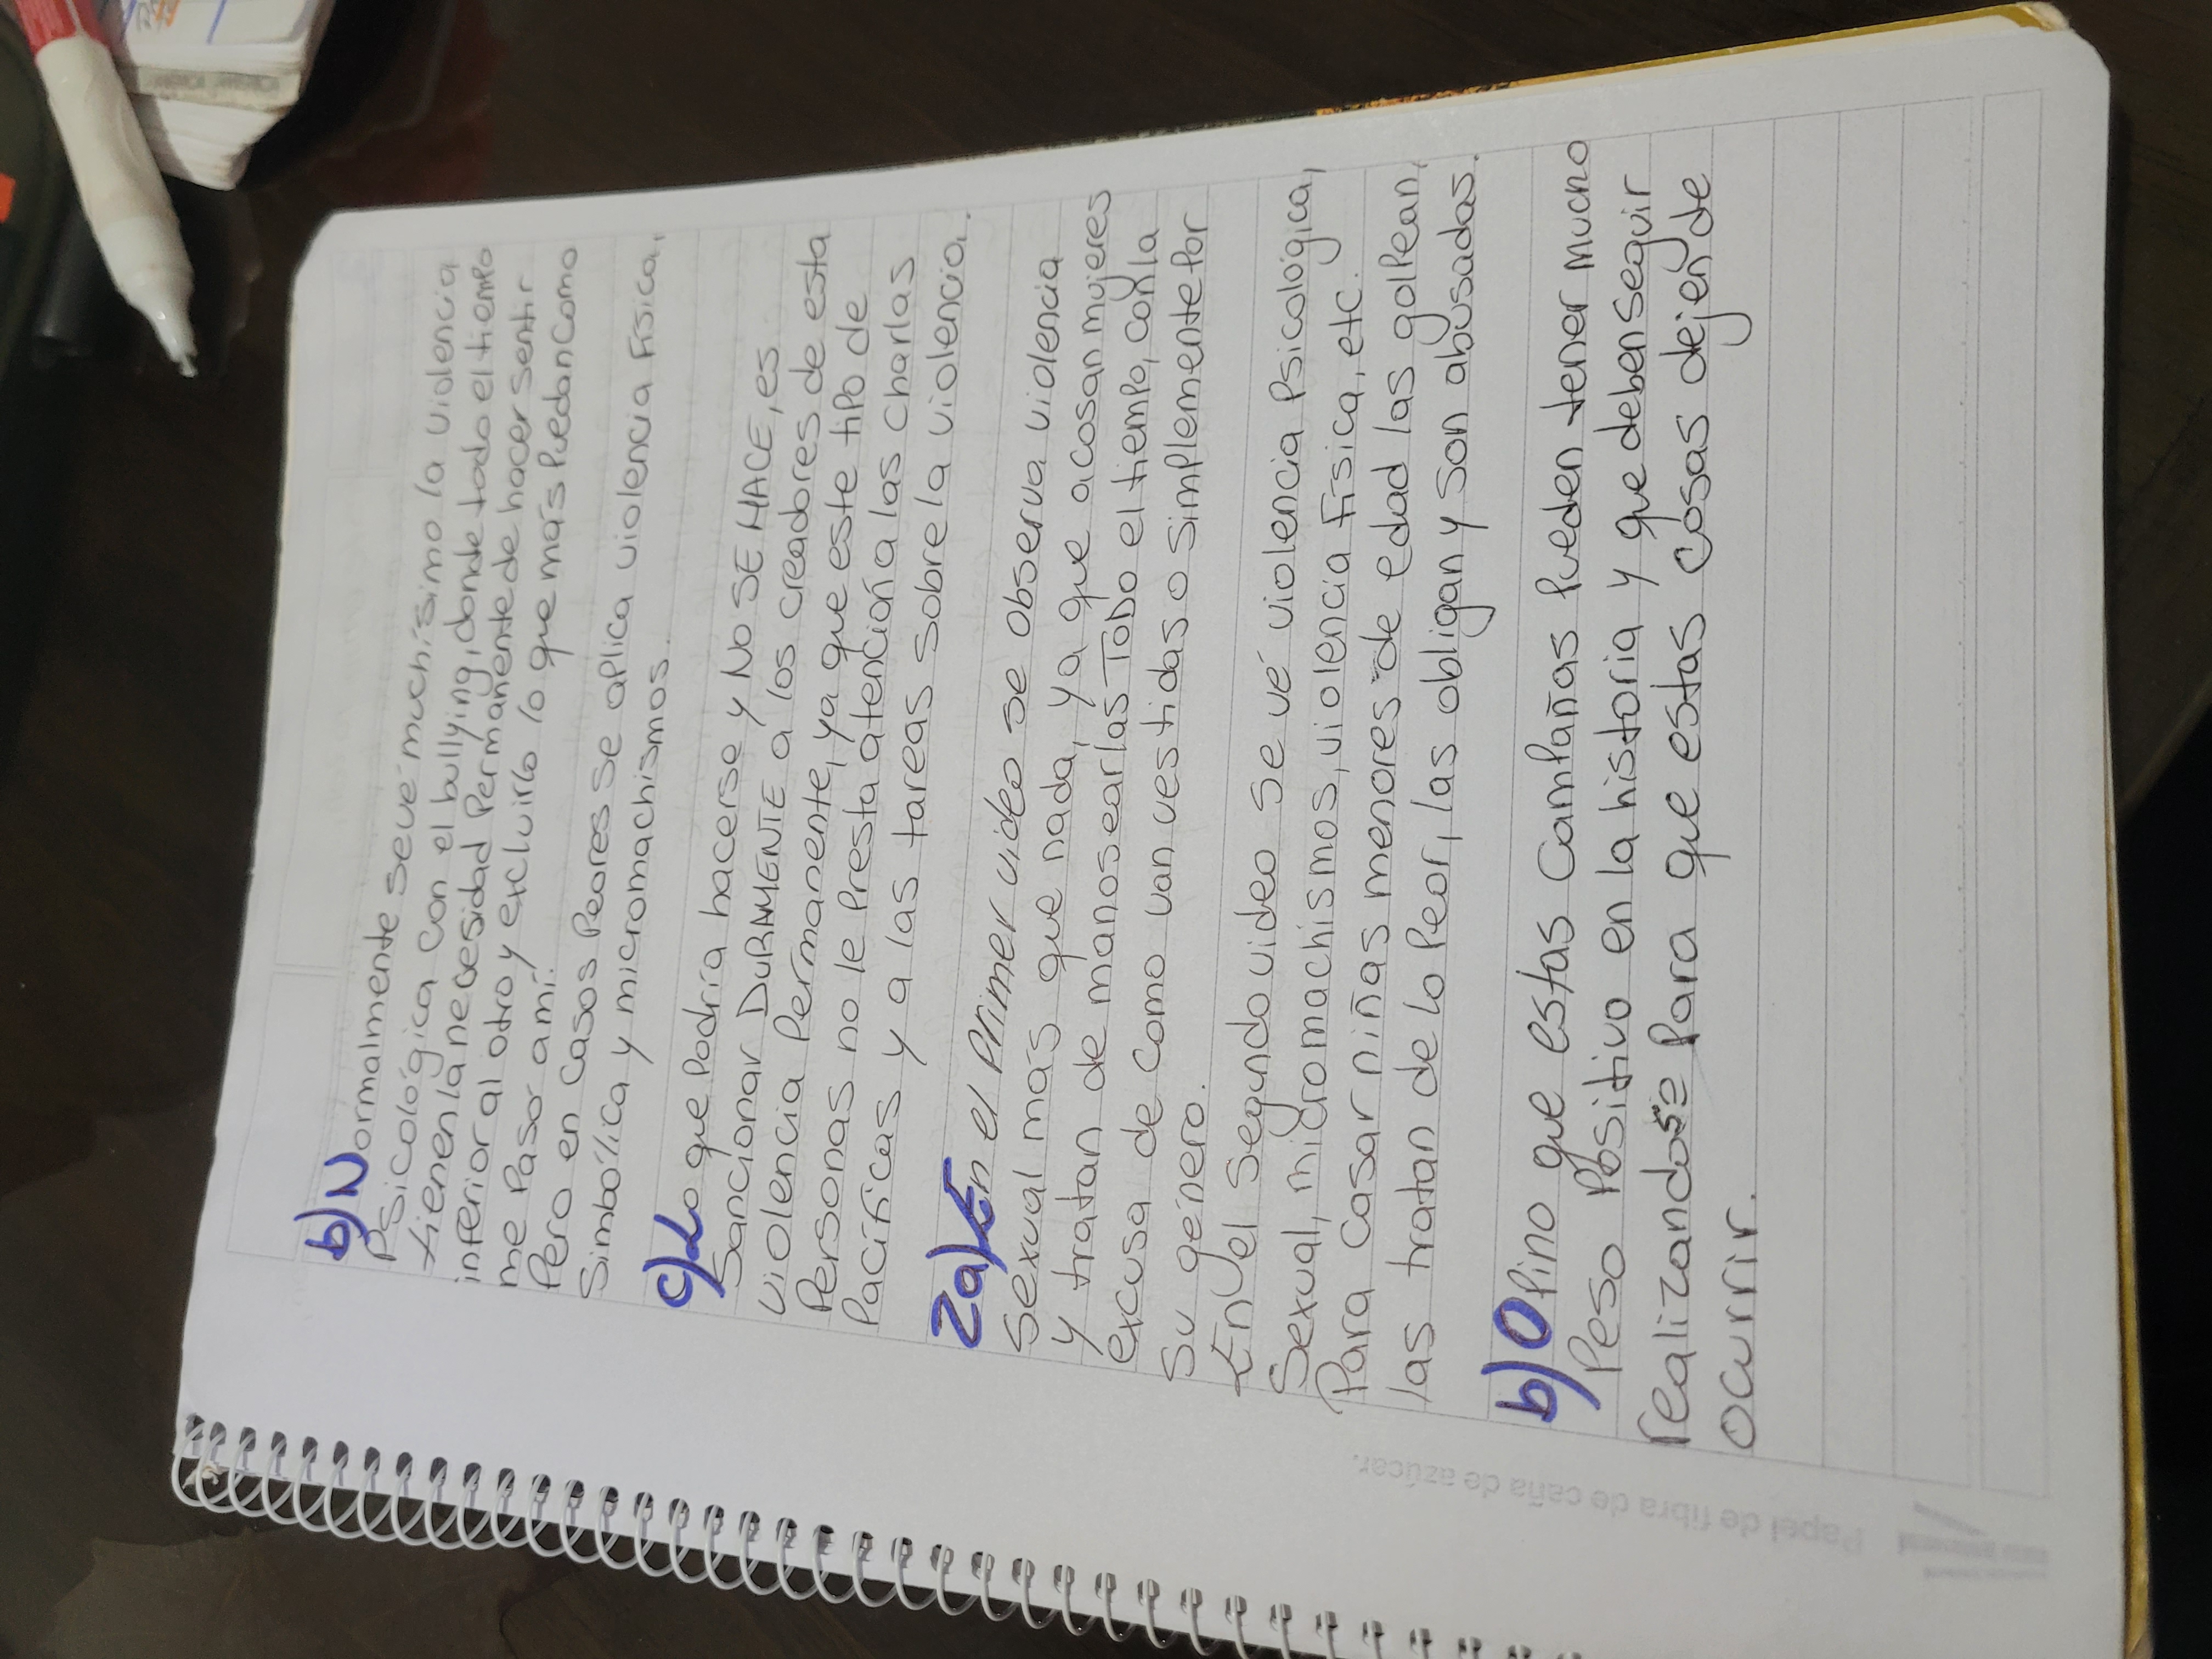 b) Normalmente se ve muchísimo la violencia
Psicológica con el bullying, donde todo el tiempo
tienen la necesidad Permanente de hacer sentir
inferior al otro y excluirlo lo que más Puedan como
me Pasor a mí.
Pero en casos Peores se aplica violencia Física,
Simbólica y micromachismos.
c) Lo que Podría hacerse y No SE HACE, es
Sancionar DURAMENTE a los creadores de esta
violencia Permanente, ya que este tipo de
Personas no le Presta atención a las charlas
Pacíficas y a las tareas sobre la violencia.
2a) En el Primer video se observa violencia
sexual más que nada, ya que acosan mujeres
y tratan de manosearlas ToDo el tiempo, con la
excusa de como van vestidas o simplemente Por
su género.
En el segundo video se vé violencia Psicológica,
Sexual, micromachismos, violencia Física, etc.
Para casar niñas menores de edad las golPean,
las tratan de lo Peor, las obligan y son abusadas.
b) OPino que estas CamPañas Pueden tener mucho
Peso Positivo en la historia y que deben seguir
realizandose Para que estas cosas dejen de
ocurrir.
Papel de fibra de caña de azúcar.